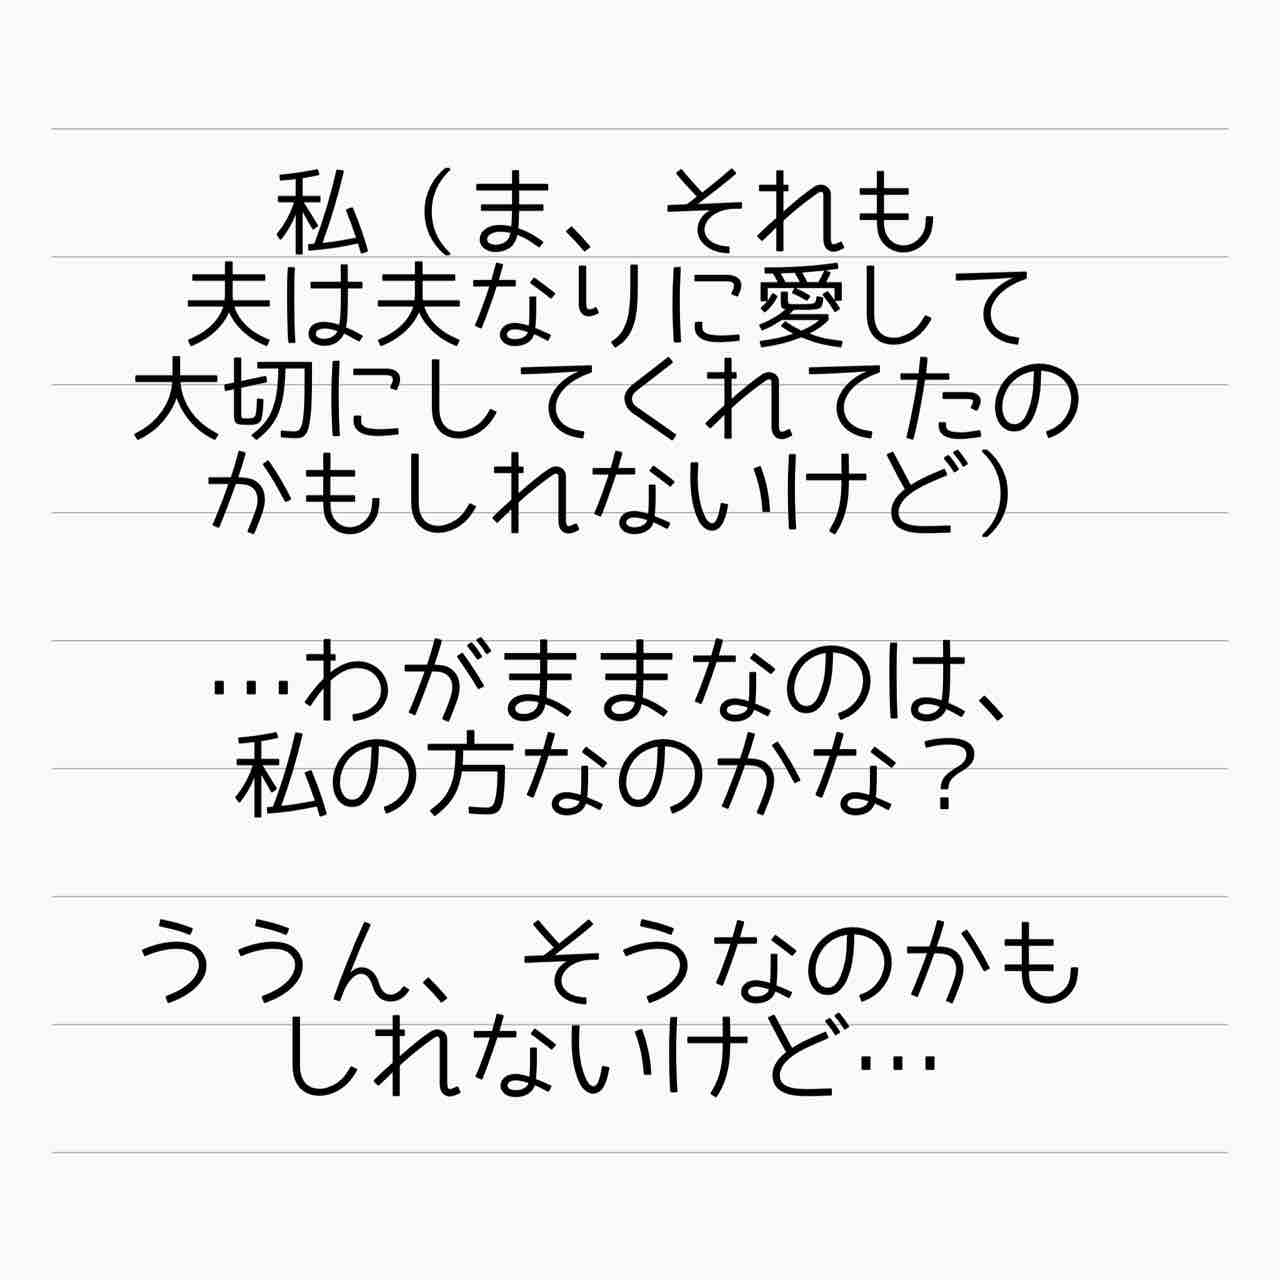 私（ま、それも
夫は夫なりに愛して
大切にしてくれてたの
かもしれないけど）
…わがままなのは、
私の方なのかな？
ううん、そうなのかも
しれないけど…